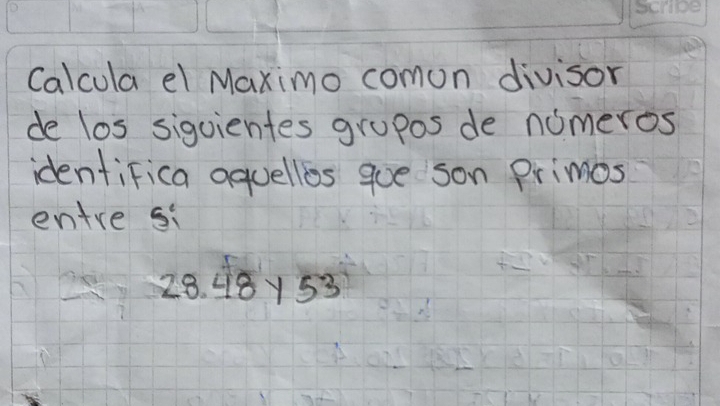 Scribe
Calcula el Maximo comun divisor
de los siguientes grupos de números
identifica aquellos que son Primos
entre sí
28.48 y 53